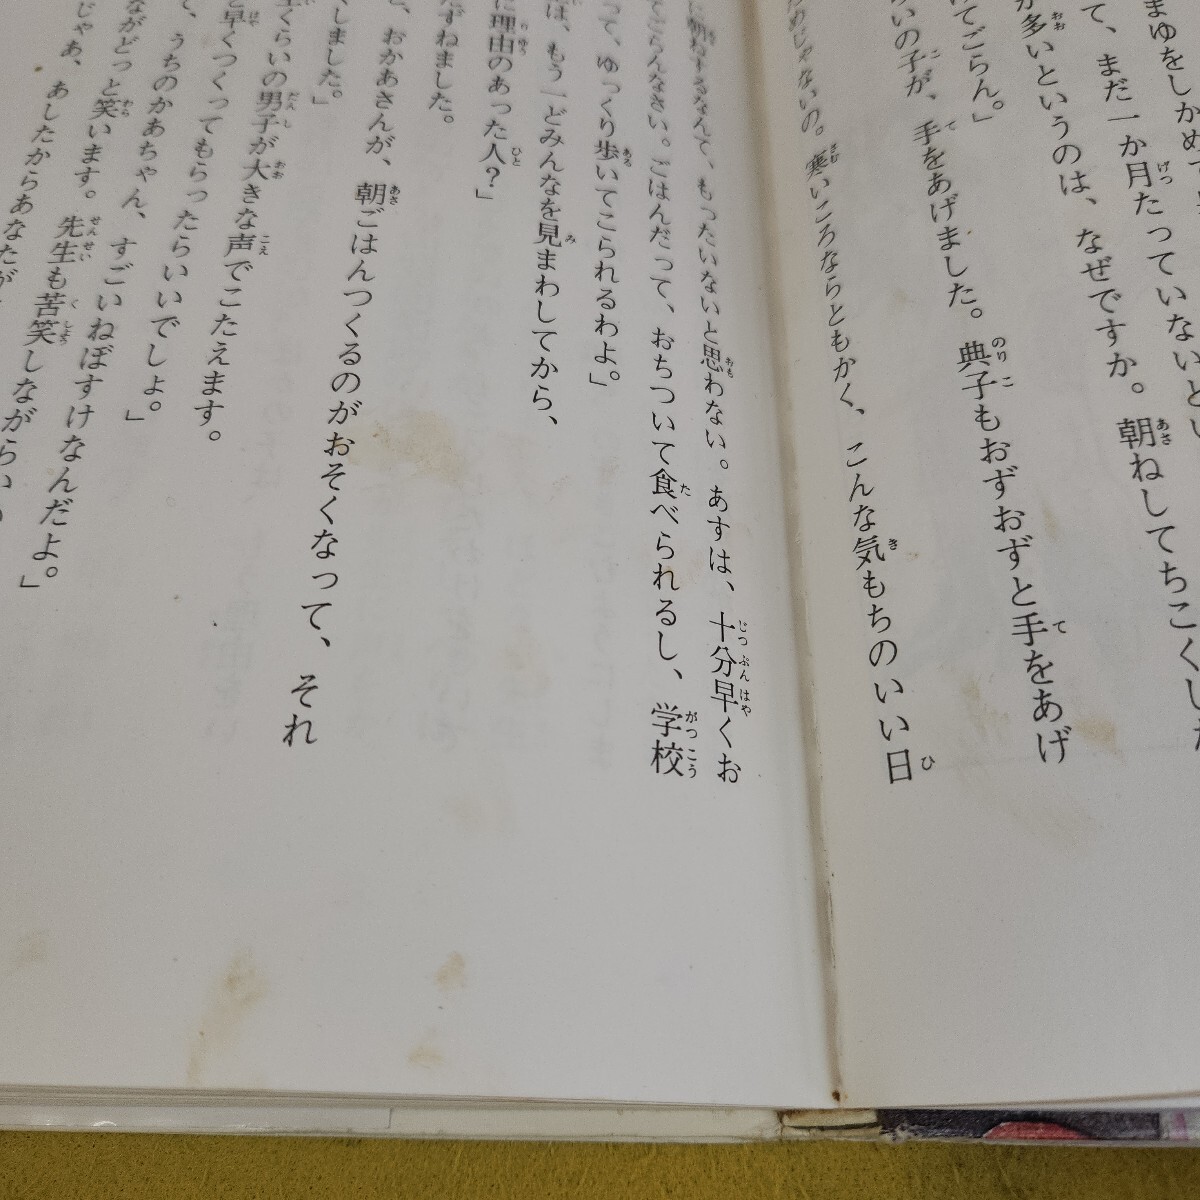 まゆをしかめて
て、まだ一か月たっていないとい
が多いというのは、なぜですか。朝ねしてちこくした
けてごらん。」
いの子が、手をあげました。典子もおずおずと手をあげ
じゃないの。寒いころならともかく、こんな気もちのいい日
に朝ねするなんて、もったいないと思わない。あすは、十分早くお
てごらんなさい。ごはんだって、おちついて食べられるし、学校
って、ゆっくり歩いてこられるわよ。」
は、もう一どみんなを見まわしてから、
に理由のあった人?」
ずねました。
、おかあさんが、朝ごはんつくるのがおそくなって、それ
しました。」
くらいの男子が大きな声でこたえます。
と早くつくってもらったらいいでしょ。」
て、うちのかあちゃん、すごいねぼすけなんだよ。」
ながどっと笑います。先生も苦笑しながらいい
じゃあ、あしたからあなたが